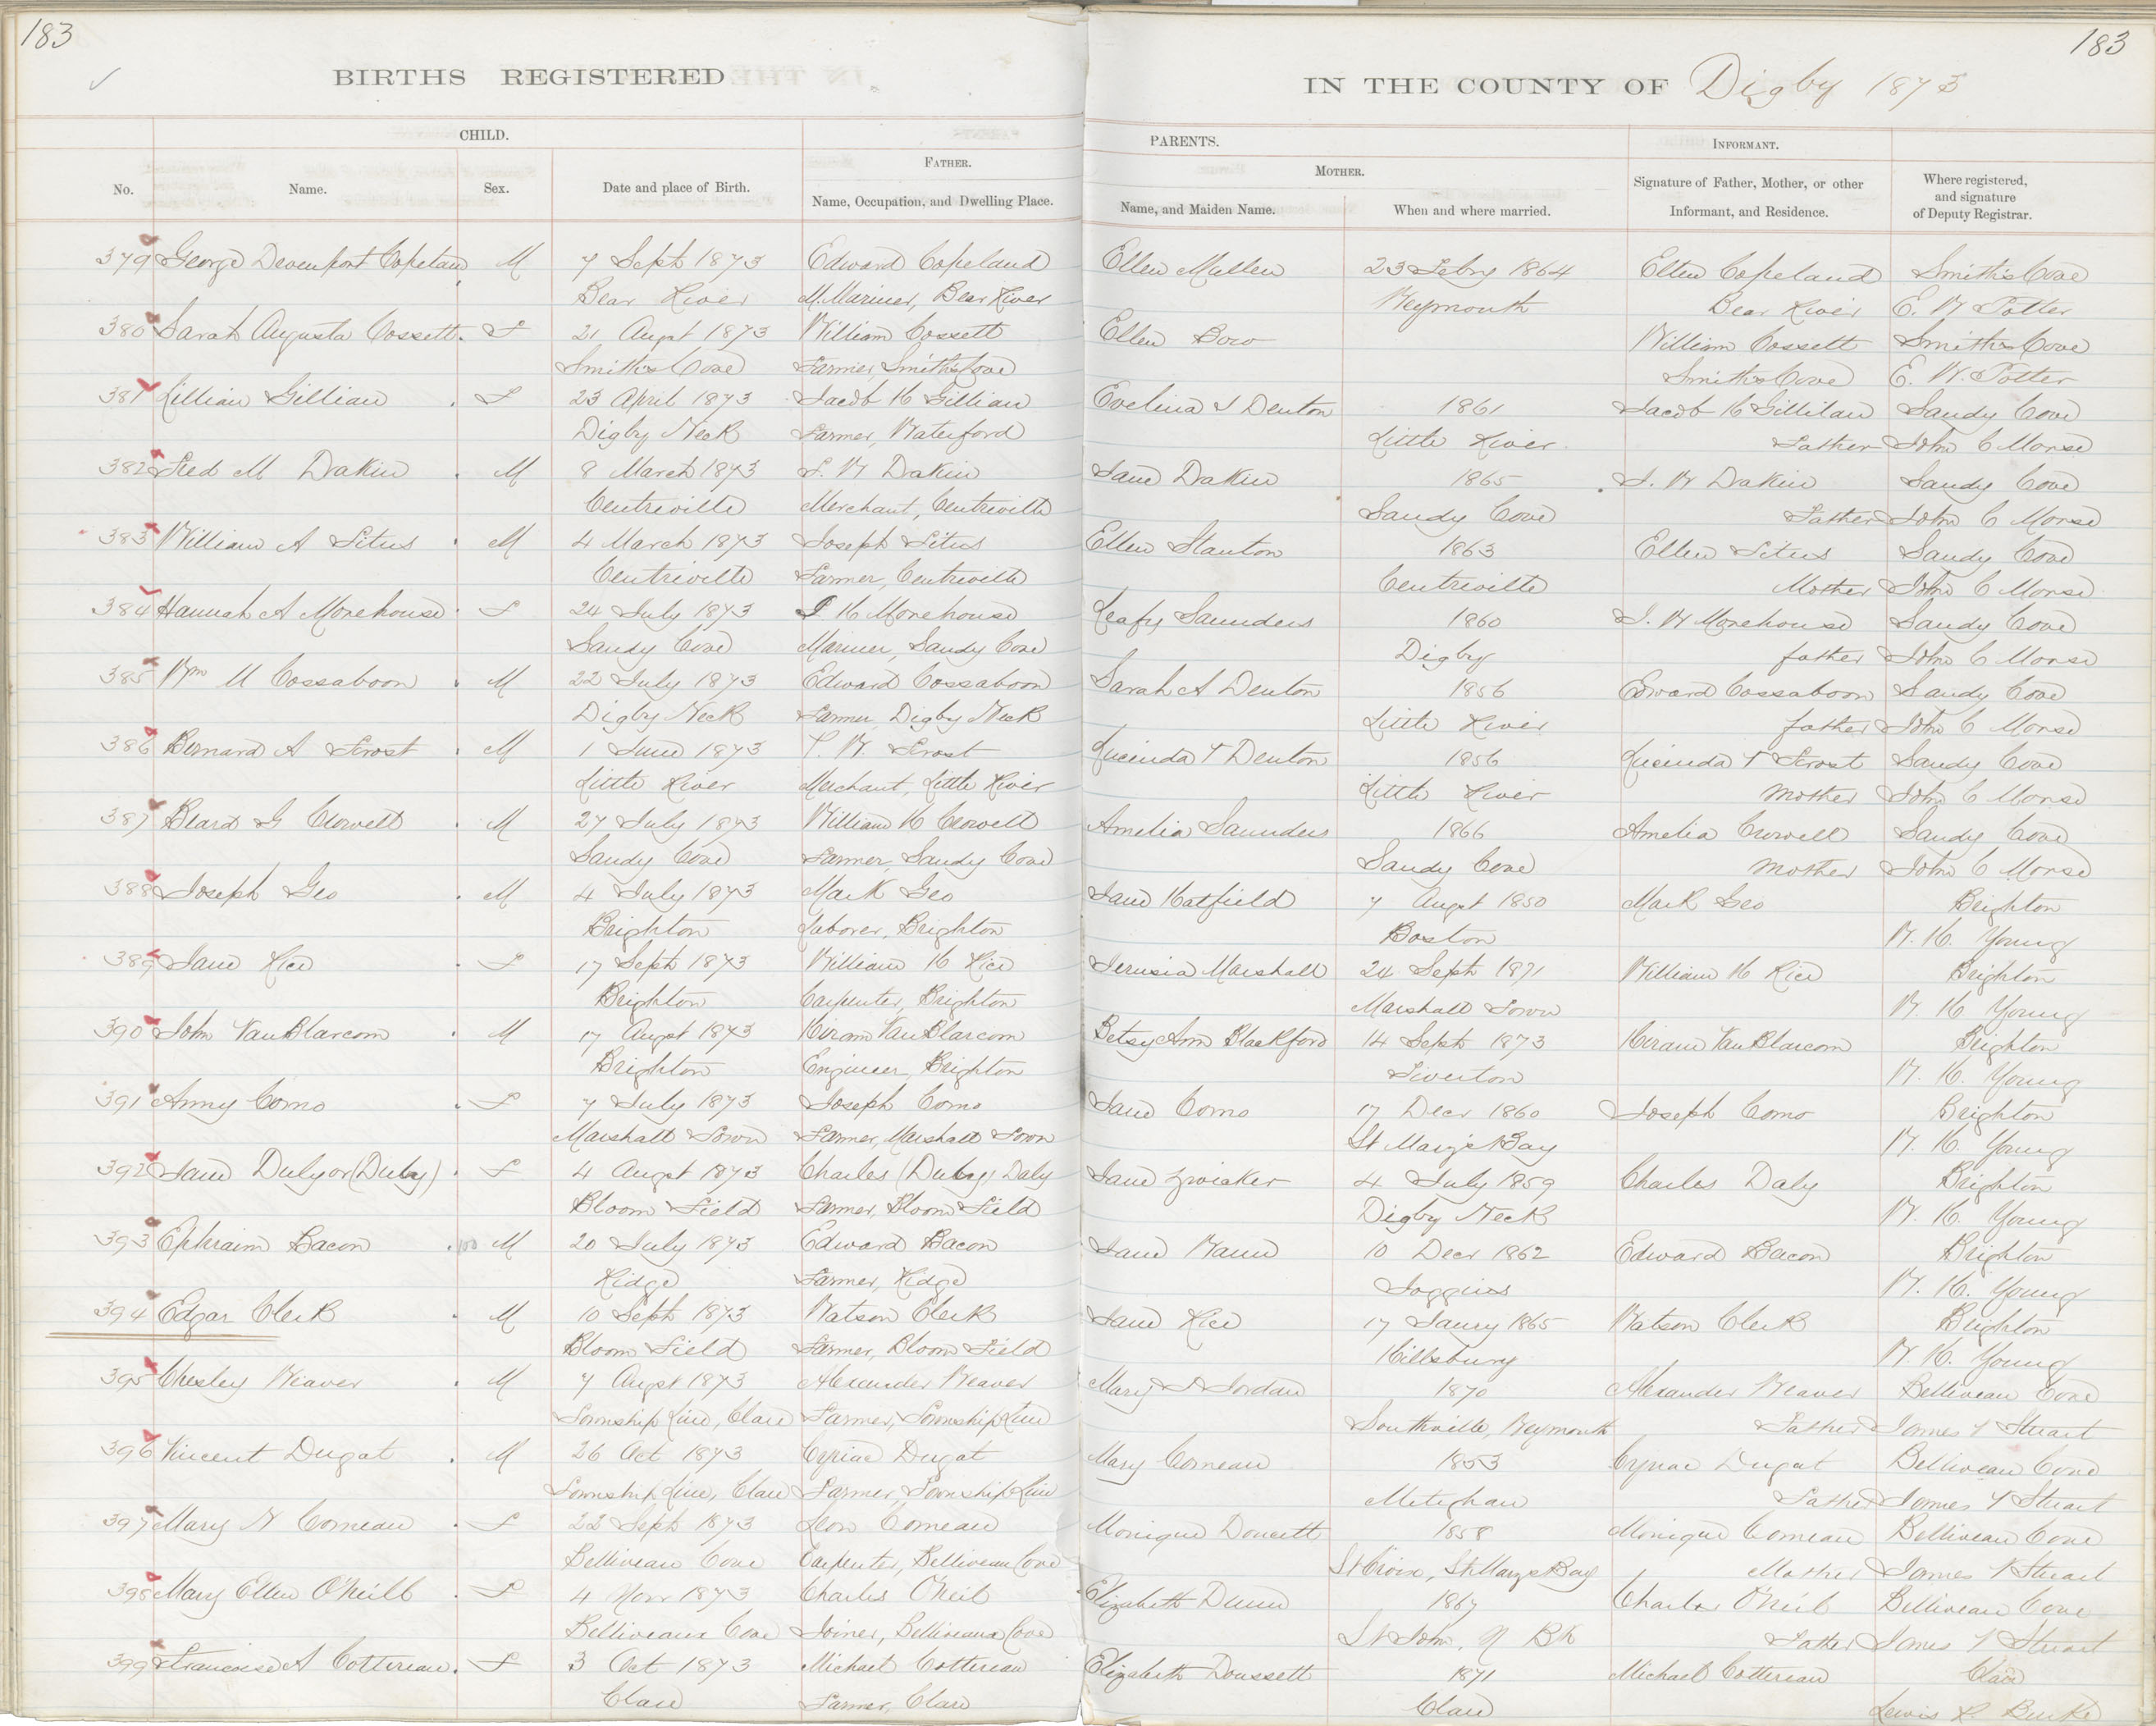 183
183
BIRTHS REGISTERED
IN THE COUNTY OF Digby 1873
CHILD.
PARENTS.
INFORMANT.
FATHER.
MOTHER.
No.
Name.
Sex.
Date and place of Birth.
Name, Occupation, and Dwelling Place.
Name, and Maiden Name.
When and where married.
Signature of Father, Mother, or other
Informant, and Residence.
Where registered,
and signature
of Deputy Registrar.
379 George Devenport Copeland M 7 Sept 1873 Edward Copeland Ellen Mullen 23 Febry 1864 Ellen Copeland Smith's Cove
Bear River M. Mariner, Bear River Weymouth Bear River E. W Potter
380 Sarah Augusta Cossett F 21 Augst 1873 William Cossett Ellen William Cossett Smith's Cove
Smith's Cove Farmer, Smith's Cove Smith's Cove E. W. Potter
381 Lillian Gillian F 23 April 1873 Jacob H Gillian Evelina J Denton 1861 Jacob H Gillilan Sandy Cove
Digby Neck Farmer, Waterford Little River Father John C Morse
382 Fred M Dakin M 8 March 1873 S. W Dakin Jane Dakin 1865 S. W Dakin Sandy Cove
Centreville Merchant, Centreville Sandy Cove Father John C Morse
383 William A Titus M 4 March 1873 Joseph Titus Ellen Stanton 1863 Ellen Titus Sandy Cove
Centreville Farmer, Centreville Centreville Mother John C Morse
384 Hannah A Morehouse F 24 July 1873 J H Morehouse Leafy Saunders 1860 J. W Morehouse Sandy Cove
Sandy Cove Mariner, Sandy Cove Digby father John C Morse
385 Wm M Cossaboon M 22 July 1873 Edward Cossaboon Sarah A Denton 1856 Edward Cossaboon Sandy Cove
Digby Neck Farmer, Digby Neck Little River father John C Morse
386 Bernard A Frost M 1 June 1873 W. Frost Lucinda T Denton 1856 Lucinda T Frost Sandy Cove
Little River Merchant, Little River Little River Mother John C Morse
387 Beard G Crowell M 27 July 1873 William H Crowell Amelia Saunders 1866 Amelia Crowell Sandy Cove
Sandy Cove Farmer, Sandy Cove Sandy Cove Mother John C Morse
388 Joseph Geo M 4 July 1873 Mark Geo Jane Hatfield 7 Augst 1850 Mark Geo Brighton
Brighton Laborer, Brighton Boston W. H. Young
389 Jane Rice F 17 Sept 1873 William H Rice Jerusia Marshall 24 Sept 1871 William H Rice Brighton
Brighton Carpenter, Brighton Marshall Town W. H Young
390 John VanBlarcom M 17 Augst 1873 Hiram VanBlarcom Betsy Ann Blackford 14 Sept 1873 Hiram VanBlarcom Brighton
Brighton Engineer, Brighton Tiverton W. H. Young
391 Anny Como F 7 July 1873 Joseph Como Jane Como 17 Decr 1860 Joseph Como Brighton
Marshall Town Farmer, Marshall Town St Mary's Bay W. H. Young
392 Jane Duly or (Duley) F 4 Augst 1873 Charles (Duley) Daly Jane Zwicker 4 July 1859 Charles Daly Brighton
Bloom Field Farmer, Bloom Field Digby Neck W. H. Young
393 Ephraim Bacon M 20 July 1873 Edward Bacon Jane 10 Decr 1862 Edward Bacon Brighton
Ridge Farmer, Ridge Joggins W. H. Young
394 Edgar Clerk M 10 Sept 1873 Watson Clerk Jane Rice 17 Janry 1865 Watson Clerk Brighton
Bloom Field Farmer, Bloom Field Hillsbury W. H. Young
395 Chesley Weaver M 7 Augst 1873 Alexander Weaver Mary A Jordan 1870 Alexander Weaver Belliveau Cove
Township Line, Clare Farmer, Township Line Southville, Weymouth Father James T Stuart
396 Vincent Dugat M 26 Oct 1873 Cyriac Dugat Mary Comeau 1853 Cyriac Dugat Belliveau Cove
Township Line, Clare Farmer, Township Line Meteghan Father James T Stuart
397 Mary N Comeau F 22 Sept 1873 Leon Comeau Monique Doucett 1858 Monique Comeau Belliveau Cove
Belliveau Cove Carpenter, Belliveau Cove St Croix, St Mary's Bay Mother James T Stuart
398 Mary Ellen O'Neill F 4 Novr 1873 Charles O'Neil Elizabeth Dunn 1867 Charles O'Neil Belliveau Cove
Belliveaux Cove Joiner, Belliveaux Cove St John, N Bk Father James T Stuart
399 Francoise A Cottereau F 3 Oct 1873 Michael Cottereau Elizabeth Doussett 1871 Michael Cottereau Clare
Clare Farmer, Clare Clare Lewis R Burke